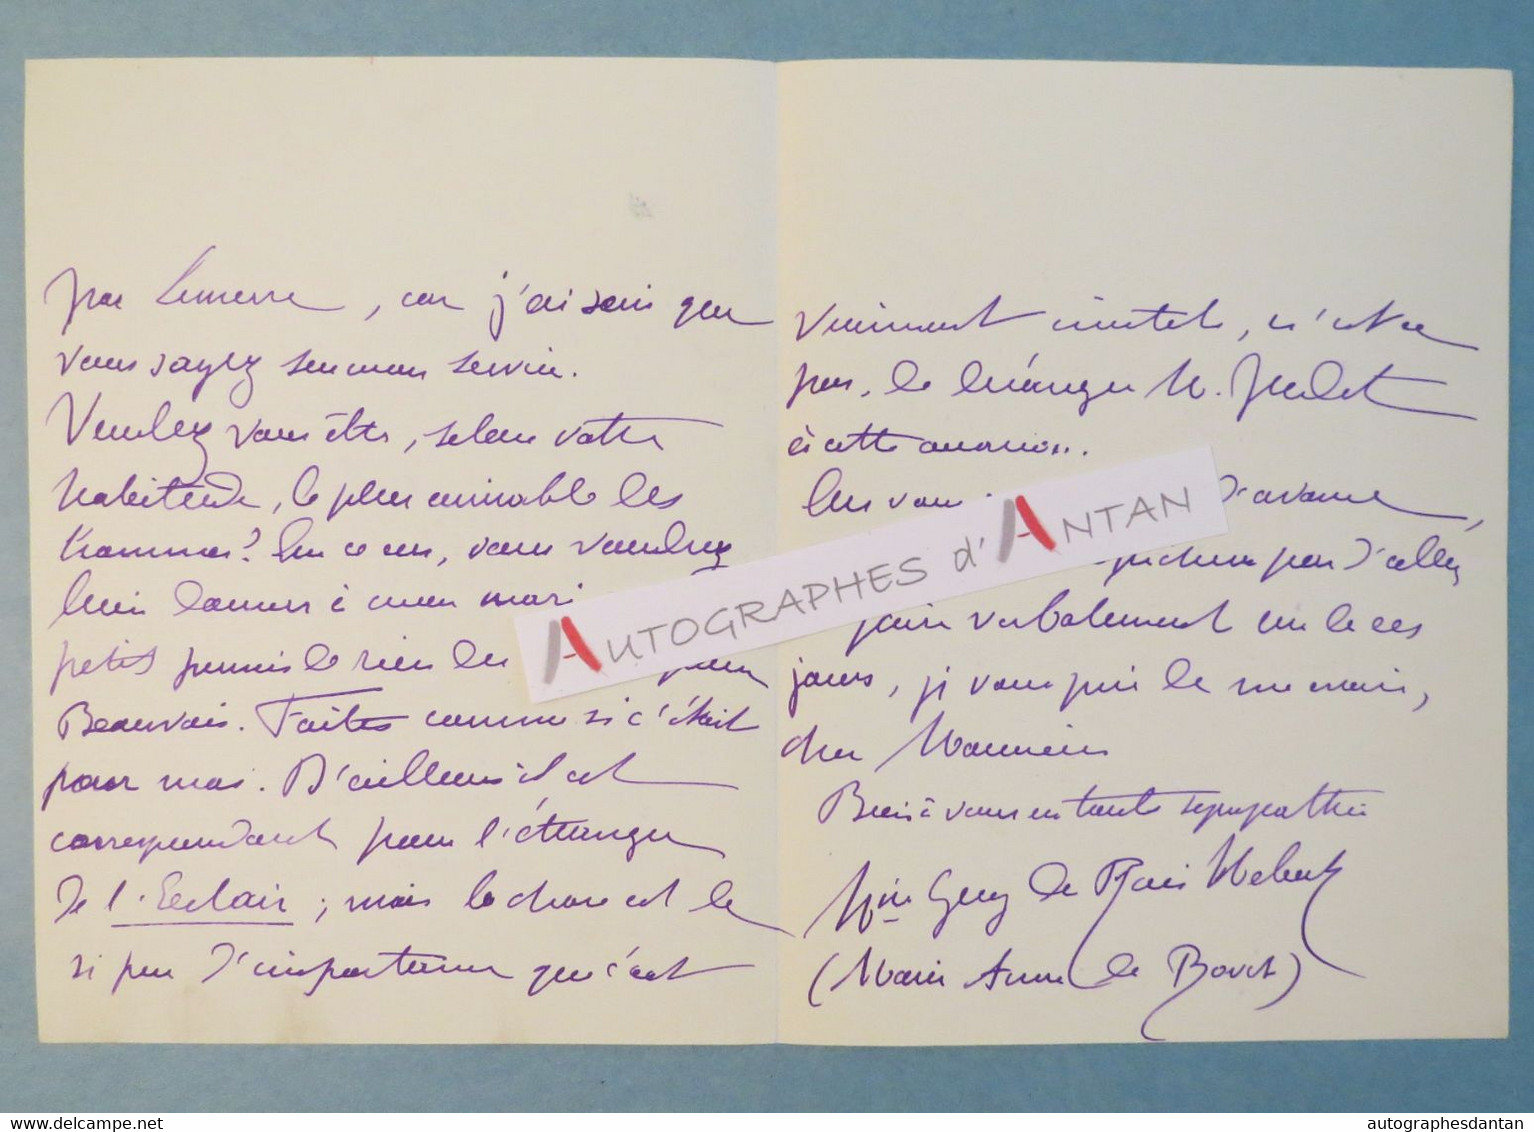 par Lemerre, car j'ai soin que
vous soyez sur mon service.
Voulez vous être, selon votre
habitude, le plus aimable des
hommes? En ce cas, vous voudrez
bien donner à mon mari
petit permis de rien du
Beauvais. Faites comme si c'était
pour moi. D'ailleurs il est
correspondant pour l'étranger
de l'Eclair ; mais la chose est de
si peu d'importance que c'est
vraiment inutile, n'est ce
pas, de déranger M. Judet
à cette occasion.
En vous d'avance,
pas d'aller
faire verbalement un de ces
jours, je vous prie de me croire,
cher Monsieur
Bien à vous en toute sympathie
Mme Guy de Bois Hebert
(Marie Anne de Bovet)
AUTOGRAPHES d'ANTAN
delcampe.net
autographesdantan